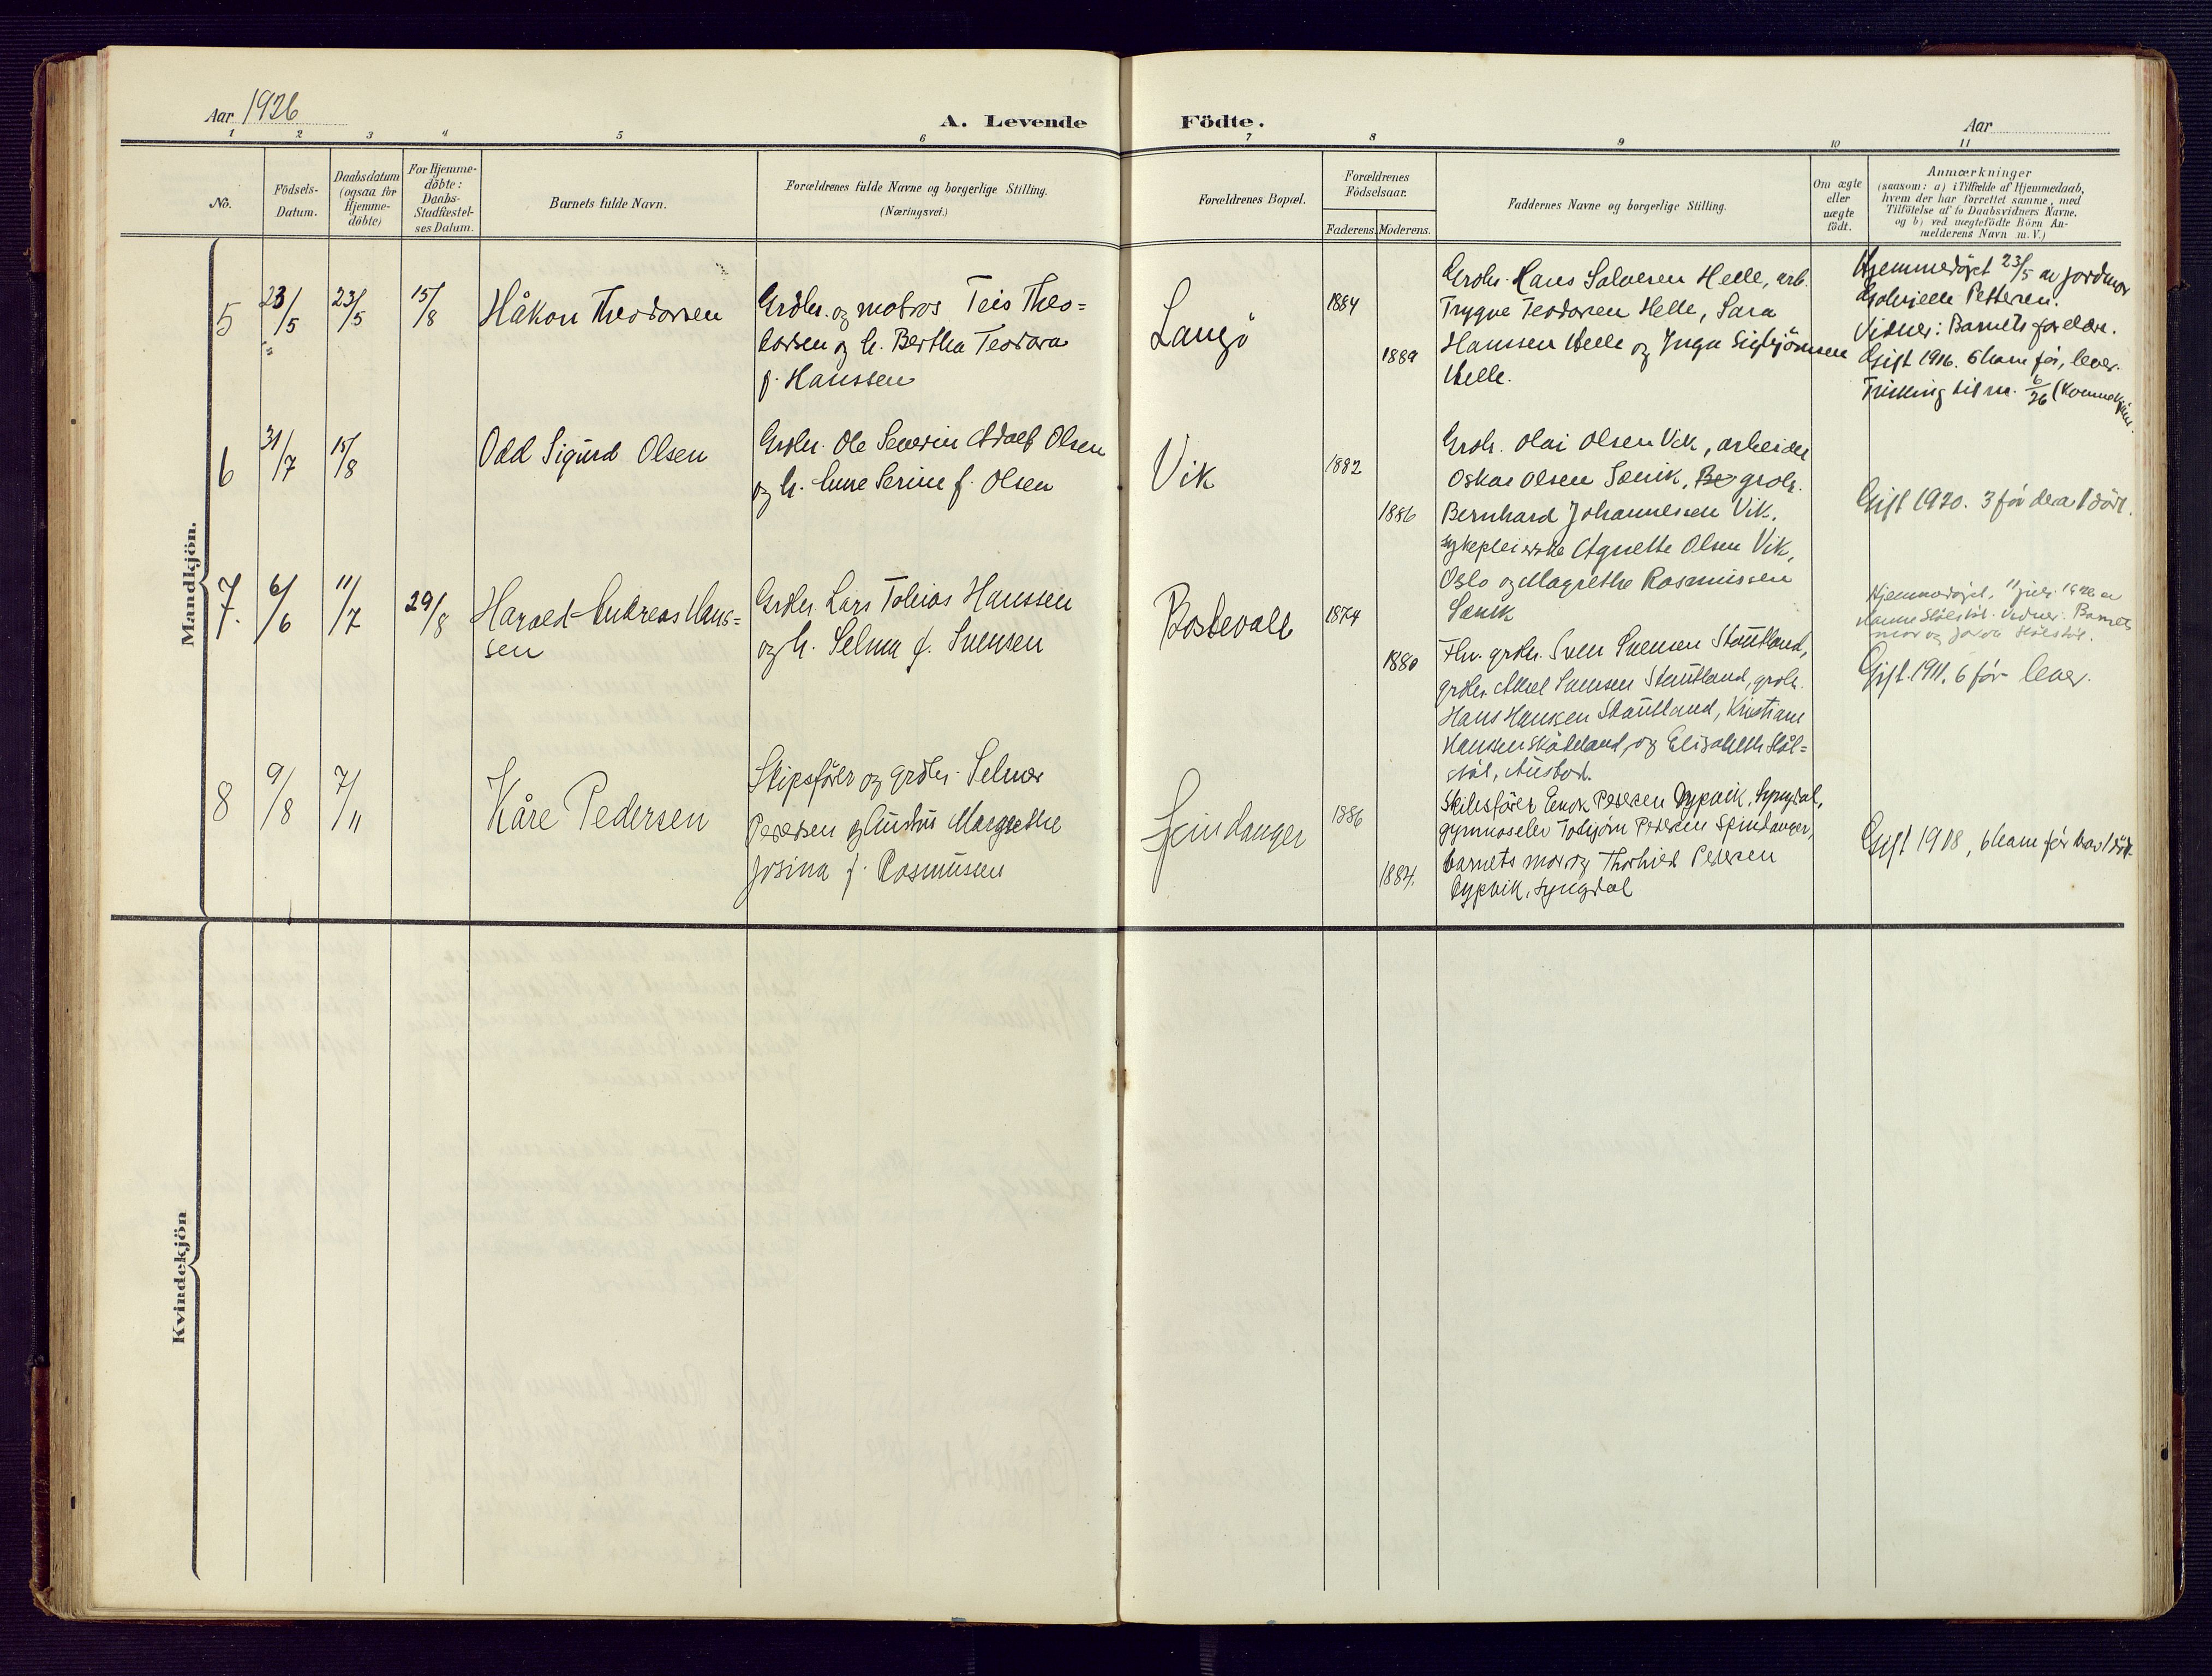 Aar 1926
A. Levende Födte.
Aar
1 2 3 4 5 6 7 8 9 10 11
No.
Födsels-
Datum.
Daabsdatum
(ogsaa for
Hjemme-
döbte)
For Hjemme-
döbte:
Daabs-
Stadfæstel-
ses Datum.
Barnets fulde Navn.
Forældrenes fulde Navne og borgerlige Stilling.
(Næringsvei.)
Forældrenes Bopæl.
Forældrenes
Födselsaar.
Faderens. Moderens.
Faddernes Navne og borgerlige Stilling.
Om ægte
eller
uægte
födt.
Anmærkninger
(saasom: a) i Tilfælde af Hjemmedaab,
hvem der har forrettet samme, med
Tilföielse af to Daabsvidners Navne,
og b) ved uægtefödte Börn An-
melderens Navn m. V.)
Mandkjön.
5
23/5
23/5
15/8
Håkon Theodorsen
Grdbr. og matros Teis Theo=
dorsen og h. Bertha Teodora
f. Hanssen
Langö
1884
1889
Grdbr. Hans Salvesen Helle, arb.
Trygve Teodorsen Helle, Sara
Hanssen Helle og Inga Sigbjörnsen
Helle.
Hjemmedöpt 23/5 av jordmor
Gabrielle Pettersen.
Vidner: Barnets foreldre.
Gift 1916. 6 barn för, lever.
Trekking til m. 6/26
6
31/7
15/8
Odd Sigurd Olsen
Grdbr. Ole Severin Adolf Olsen
og h. Anne Serine f. Olsen
Vik
1882
1886
Grdbr. Olai Olsen Vik, arbeider
Oskar Olsen Sænik, Be grdbr.
Bernhard Johannesen Vik,
sykepleierske Agnethe Olsen Vik,
Oslo og Magrethe Rasmussen
Sænik
Gift 1920. 3 för derav 1 död.
7.
6/6
11/7
29/8
Harald Andreas Hans=
sen
Grdbr. Lars Tobias Hanssen
og h. Selma f. Svensen
Bostevoll
1874
1880
Fhv. grdbr. Sven Svensen Stautland,
grdbr. Aksel Svensen Stautland, grdbr.
Hans Hansen Stautland, Kristiane
Hanssen Skådeland, og Elisabeth Stöl=
stöl, Ausbod.
Hjemmedöpt, 11 juli 1926 av
Hanne Stölstöl. Vidner: Barnets
mor og Stölstöl.
Gift. 1911. 6 för lever.
8
9/8
7/11
Kåre Pedersen
Skipsförer og grdbr. Selmer
Pedersen og hustru Margrethe
Josina f. Rasmussen
Spindanger
1886
1884.
Skibsförer Enok Pedersen Dypvik, Lyngdal,
gymnaselev Torbjörn Pedersen Spindanger,
barnets mor og Thorhild Pedersen
Dypvik, Lyngdal
Gift 1908, 6 barn för hvorav 1 död.
Kvindekjön